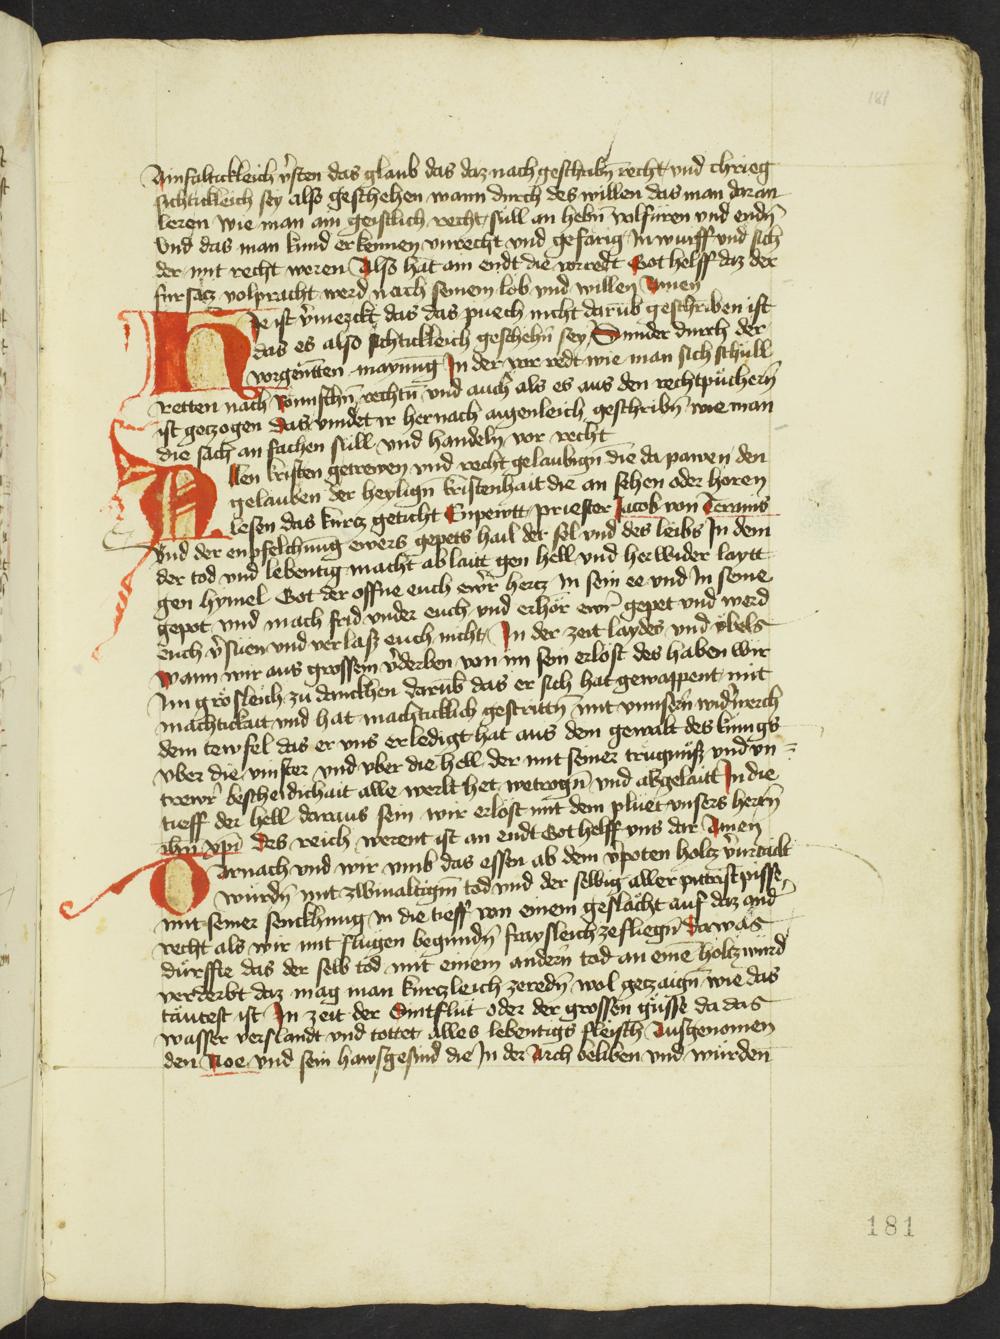 181
Ainfaltickleich v̓sten das glaub das daz nach geschribn̄ recht vnd chrieg
sichtickleich sey also geschehen wann durch des willen das man dar an
leren wie man ain geistlich recht süll an hebn̄ volfüren vnd endn̄
Vnd das man kund erkennen vnrecht vnd gefärig In wurff vnd sich
der mit recht weren Also hat ain endt die vorredt Got helff daz der
fürsacz volpracht werd nach seinem lob vnd willen Amen
Hie ist v̓merckt das das puech nicht darüb geschriben ist
das es also sichtickleich geschehn̄ sey Sunder durch der
vorgen̄tten maynung In der vor redt wie man sich schüll
retten nach Römischn̄ rechtn̄ vnd auch als es aus den rechtpüchern̄
ist geczogen Das vindet ir hernach aigenleich geschribn̄ wie man
die sach an fachen süll vnd handeln vor recht
Allen kristen getrewen vnd recht gelaubign̄ die da pawen den
gelauben der heylign̄ kristenhait die an sehen oder hören
lesen das kurcz geticht Enpewtt priester Jacob von Teramis
Vnd der enpfelchnung ewers gepets hail der sel vnd des leibs In dem
der tod vnd lebentig macht ab laitt gen hell vnd her wider laytt
gen hymel Got der offne euch ewr̄ hercz in sein ee vnd In seine
gepot vnd mach frid vnder euch vnd erhör ewr̄ gepet vnd werd
euch v̓süen vnd verlasz euch nicht In der zeit laydes vnd übels
Wann wir aus grossem v̓derben von im sein erlöst des haben wir
Im grösleich zu danckhen darüb das er sich hat gewappent mit
mächtickait vnd hat machticklich gestrittn̄ mit vnnsern̄ wid̓werch
dem tewfel das er vns erledigt hat aus dem gewalt des künigs
vber die vinster vnd vber die hell der mit seiner trugnüsz vnd vn=
trewr̄ beschedichait alle werlt het wetrogn̄ vnd abgelaitt In die
tieff der hell daraus sein wir erlöst mit dem pluet vnsers herrn̄
ihū xpī des reich werent ist an endt Got helff vns dar Amen
Darnach vnd wir vmb das essen ab dem v̓poten holcz v̓urtailt
würdn̄ mit zwiualtigm̄ tod vnd der selbig aller pittrist pisse
mit seiner senckhnug in die tieff von einem geslächt auf daz and̓
recht als wir mit flugen begundn̄ fräysleich ze fliegn̄ Da was
dürfftte das der selb tod mit einem andern tod an eine holcz wurd
verderbt daz mag man kurczleich zeredn̄ wol geczaign̄ wie das
täucest ist In zeit der Sintflut oder der grossen güsse da das
wasser verslandt vnd tottet alles lebentigs fleisch Ausgenomen
den Noe vnd sein hawsgesind die In der Arch beliben vnd würden
181